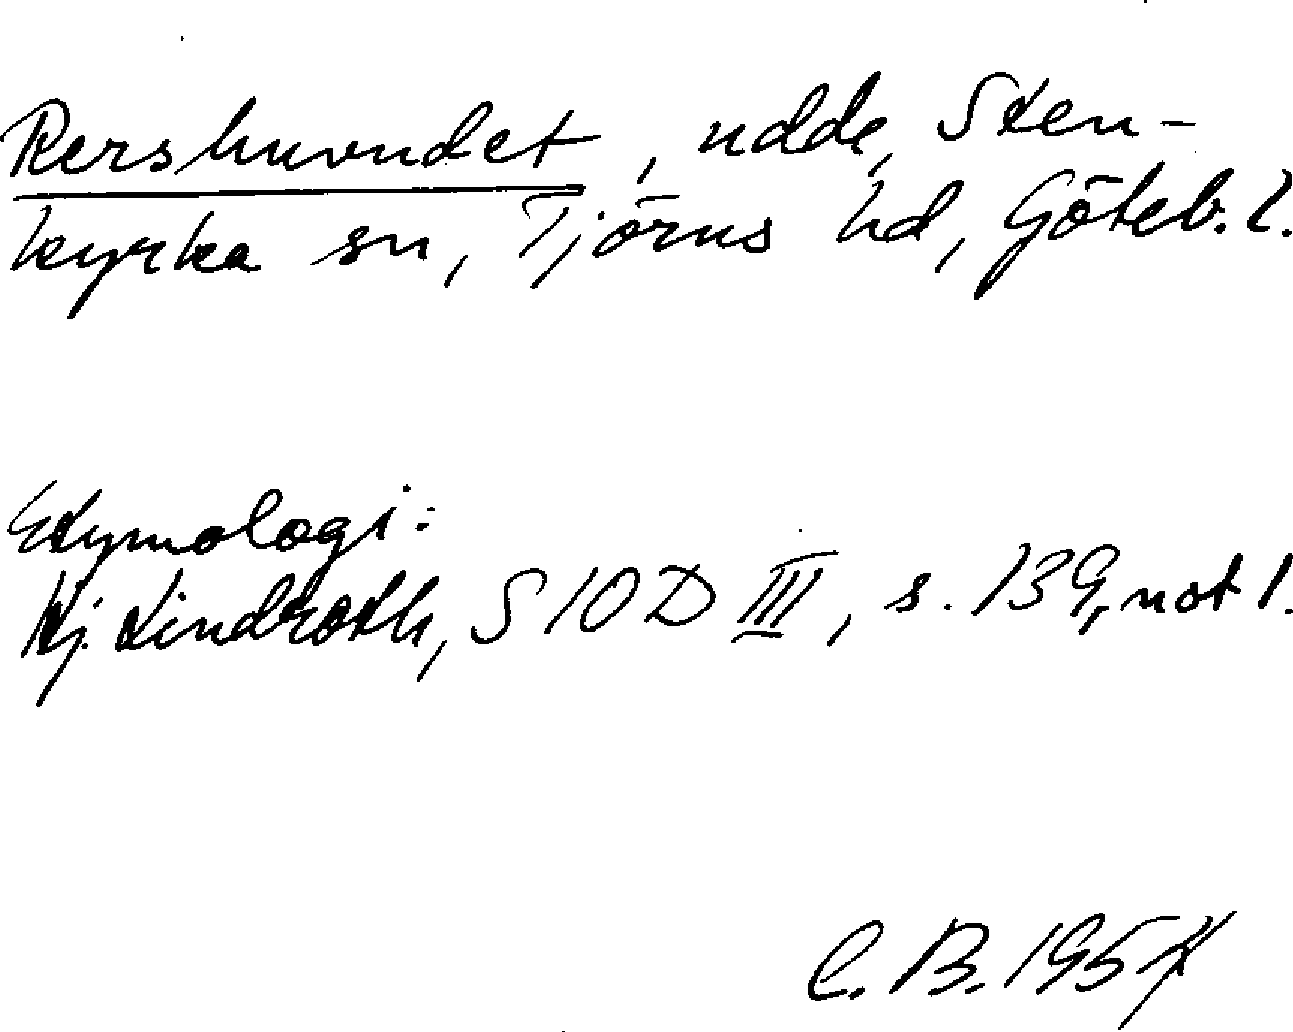 Rershuvudet, udde, Sten-
kyrka sn, Tjörns hd, Göteb. l.
Etymologi:
Hj. Lindroth, SIOD III, s. 139, not 1.
C. B. 1957